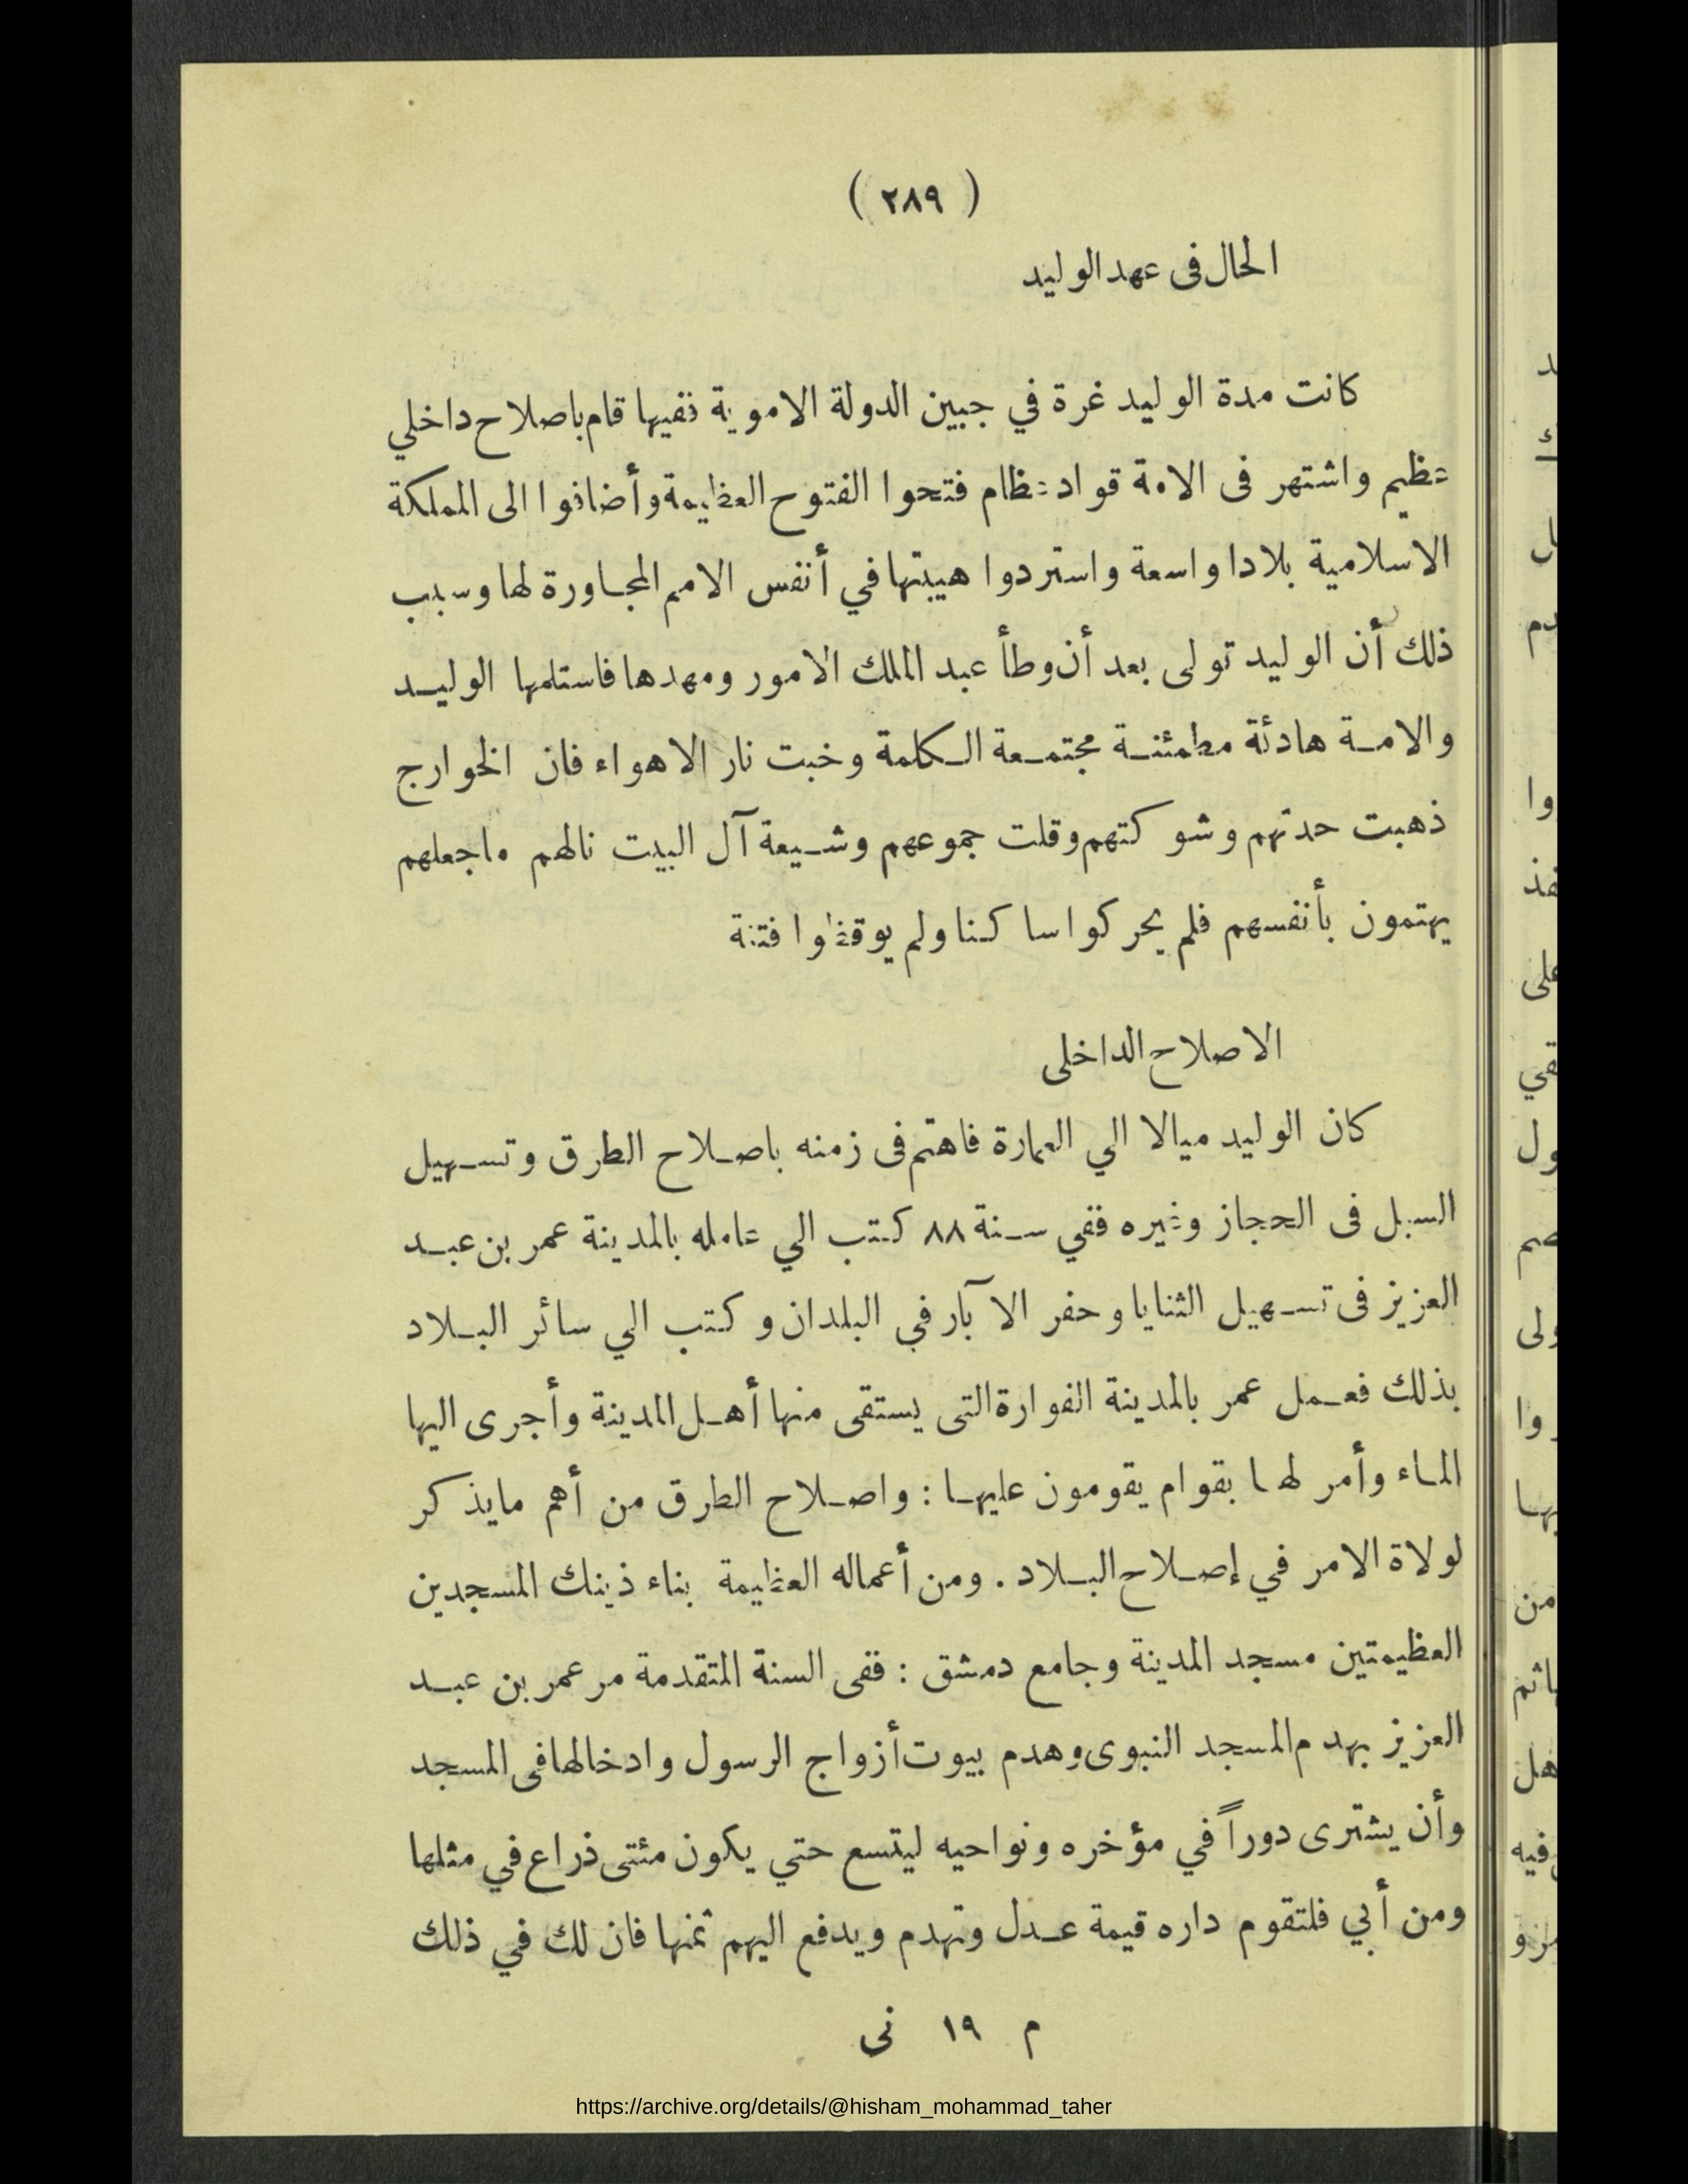 ( ٢٨٩ )
الحال فى عهد الوليد
كانت مدة الوليد غرة في جبين الدولة الاموية ففيها قام باصلاح داخلي
عظيم واشتهر فى الامة قواد عظام فتحوا الفتوح العظيمة وأضافوا الى المملكة
الاسلامية بلادا واسعة واستردوا هيبتها في أنفس الامم المجاورة لها وسبب
ذلك أن الوليد تولى بعد أن وطأ عبد الملك الامور ومهدها فاستلمها الوليد
والامة هادئة مطمئنة مجتمعة الكلمة وخبت نار الاهواء فان الخوارج
ذهبت حدتهم وشوكتهم وقلت جموعهم وشيعة آل البيت نالهم ماجعلهم
يهتمون بأنفسهم فلم يحركوا ساكنا ولم يوقظوا فتنة
الاصلاح الداخلى
كان الوليد ميالا الي العمارة فاهتم فى زمنه باصلاح الطرق وتسهيل
السبل فى الحجاز وغيره ففي سنة ٨٨ كتب الي عامله بالمدينة عمر بن عبد
العزيز فى تسهيل الثنايا وحفر الآبار في البلدان وكتب الي سائر البلاد
بذلك فعمل عمر بالمدينة الفوارة التى يستقى منها أهل المدينة وأجرى اليها
الماء وأمر لها بقوام يقومون عليها : واصلاح الطرق من أهم مايذكر
لولاة الامر في إصلاح البلاد . ومن أعماله العظيمة بناء ذينك المسجدين
العظيمتين مسجد المدينة وجامع دمشق : ففى السنة المتقدمة مر عمر بن عبد
العزيز بهدم المسجد النبوى وهدم بيوت أزواج الرسول وادخالها فى المسجد
وأن يشترى دوراً في مؤخره ونواحيه ليتسع حتي يكون مئتى ذراع في مثلها
ومن أبي فلتقوم داره قيمة عدل وتهدم ويدفع اليهم ثمنها فان لك في ذلك
م ١٩ نى
https://archive.org/details/@hisham_mohammad_taher